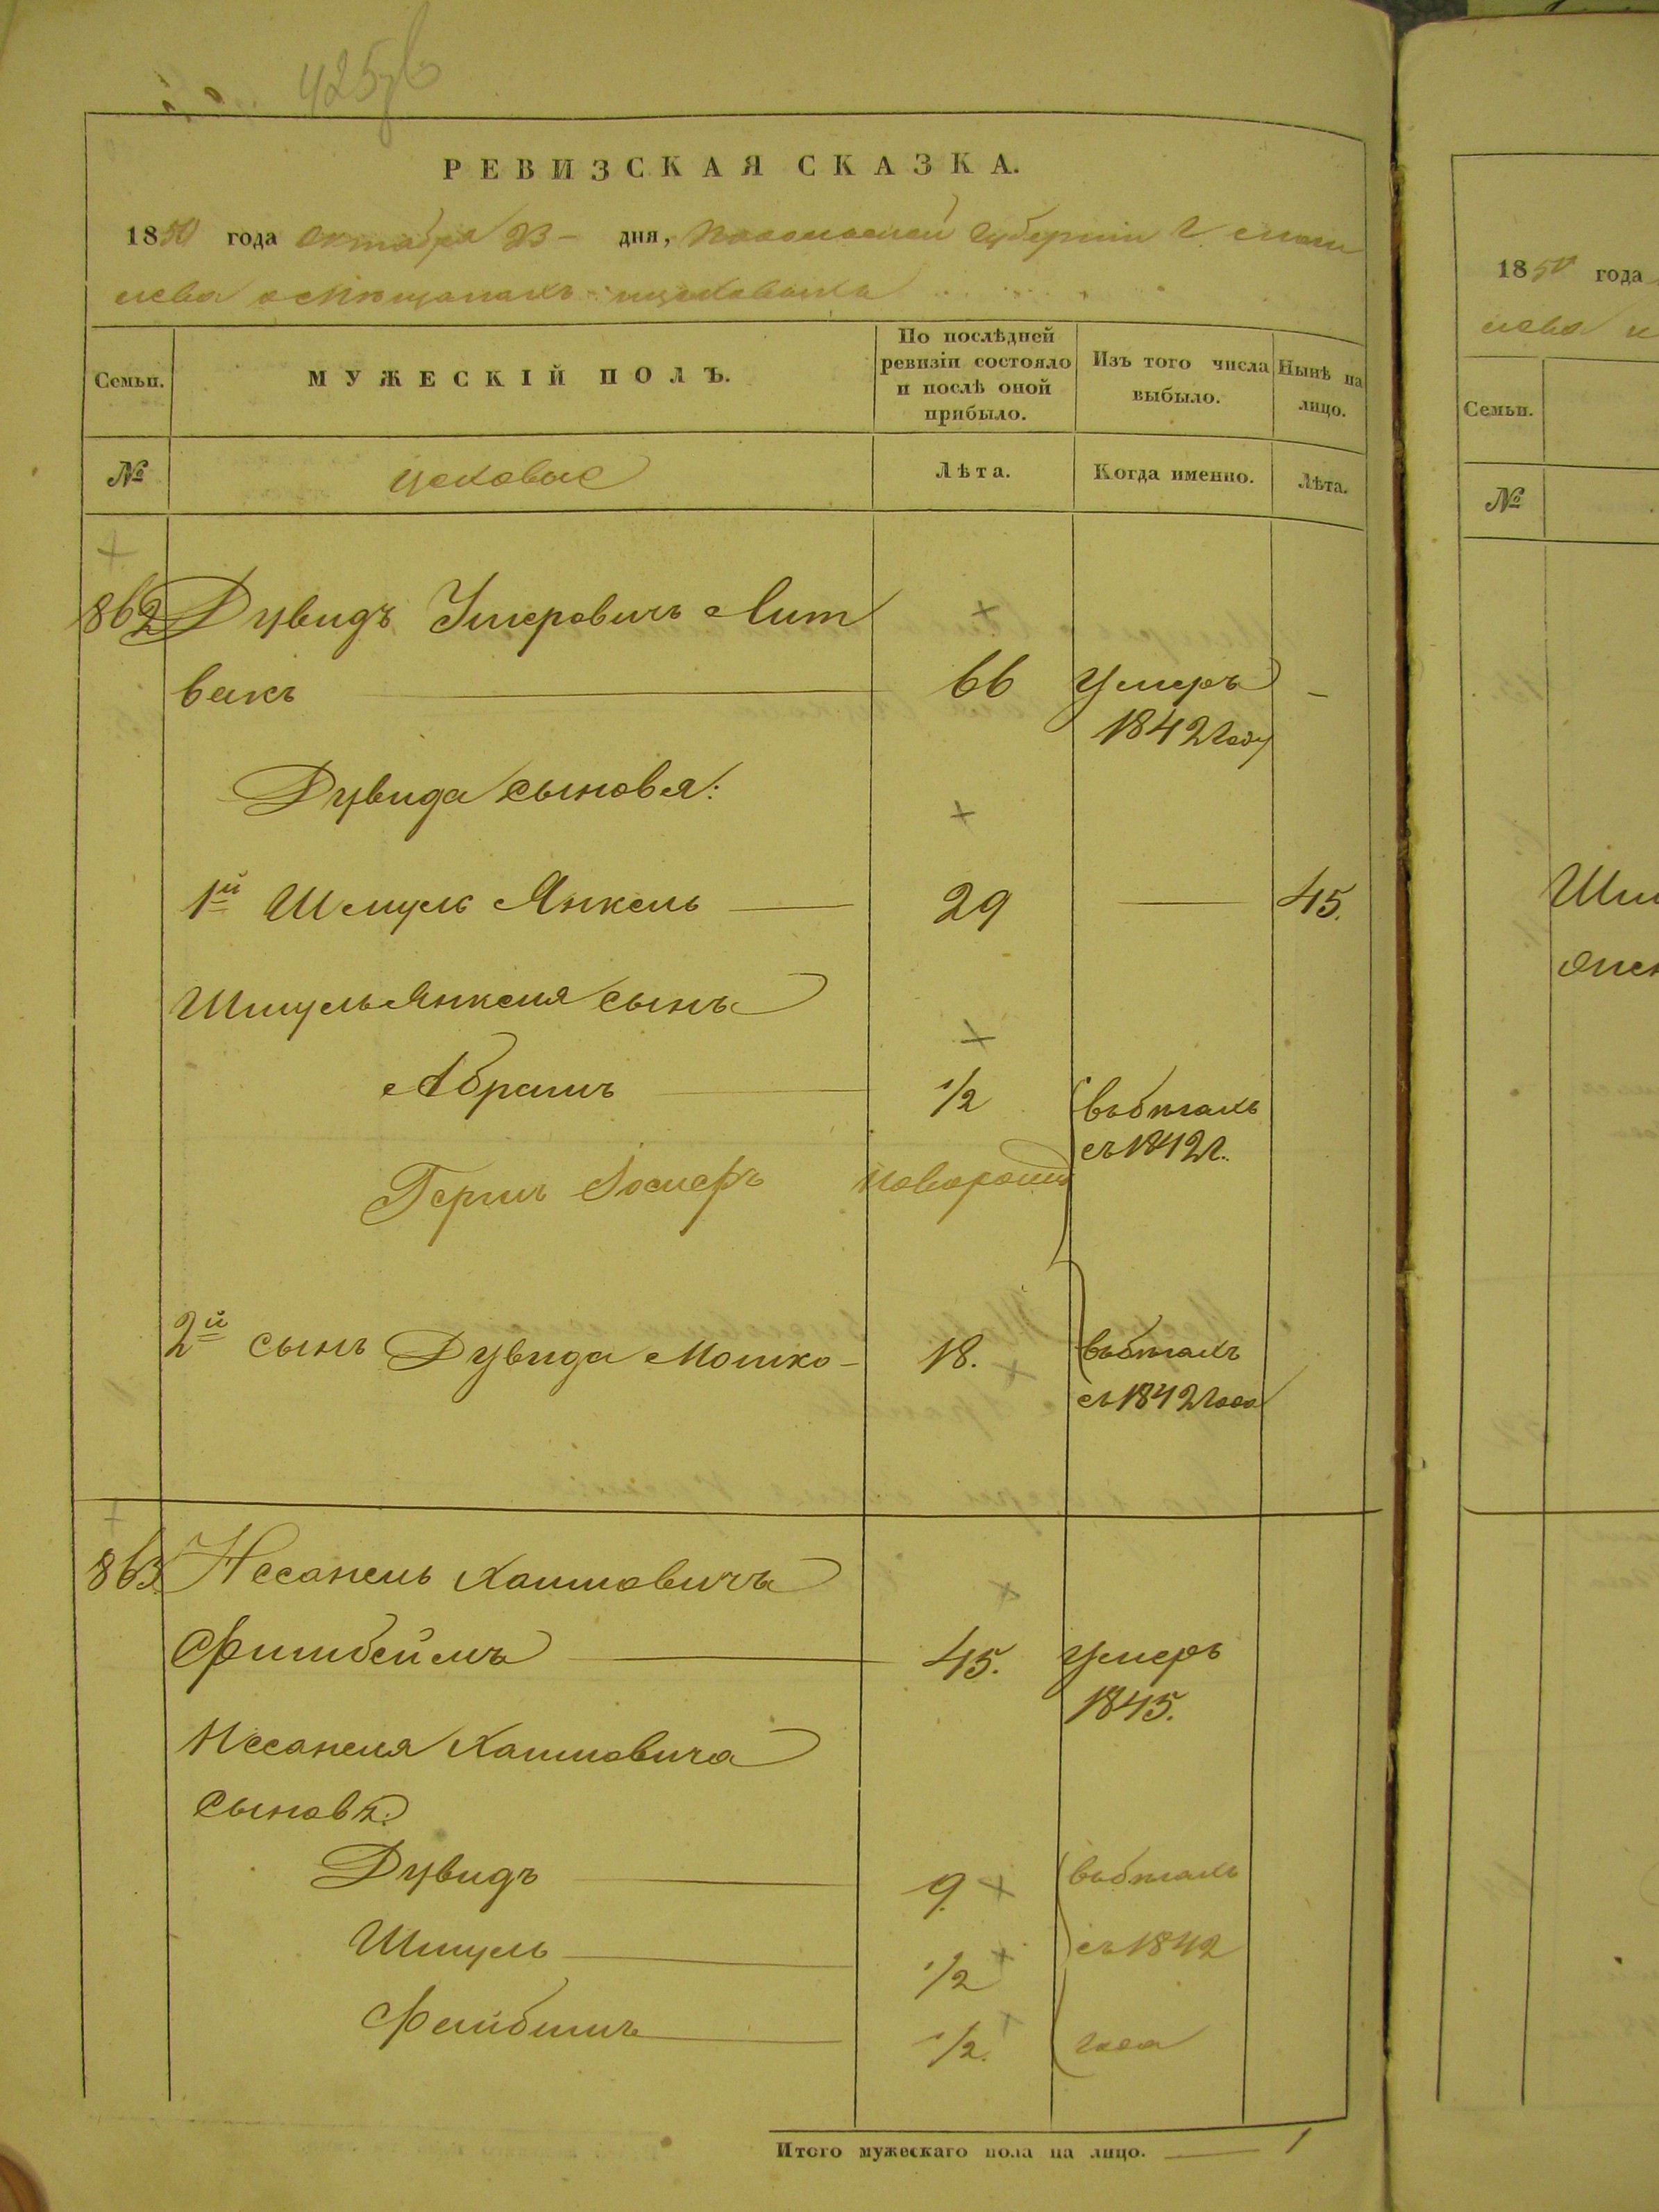 425 об
РЕВИЗСКАЯ СКАЗКА.
1850 года октября 23 - дня, Подольской губерніи г. Моги
лева о мѣщанахъ цеховыхъ
Семьи.
МУЖЕСКІЙ ПОЛЪ.
По послѣдней ревизіи состояло и послѣ оной прибыло.
Изъ того числа выбыло.
Нынѣ на лицо.
№
цеховые
Лѣта.
Когда именно.
Лѣта.
862 Дувидъ Умеровичъ Лит
вакъ 66 умеръ -
1842 году
Дувида сыновья:
1й Шмуль Янкель 29 45.
Шмуль Янкеля сынъ
Абрамъ 1/2 въ бѣгахъ
съ 1842 г.
Гершъ Іосифъ новорожд
2й сынъ Дувида Мошко - 18. въ бѣгахъ
съ 1842 года
863 Несанель Хаимовичъ
Фишбеймъ 45. умеръ
1845.
Несанеля Хаимовича
сыновя:
Дувидъ 9. въ бѣгахъ
Шмуль 1/2 съ 1842
Файбишъ 1/2. года
Итого мужескаго пола на лицо. 1
1850 года
лева
Семьи.
№